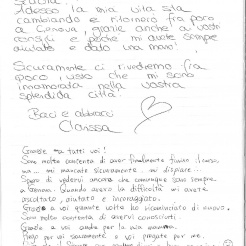 scuola!
Adesso la mia vita sta
cambiando e ritornerò fra poco
a Genova, grazie anche a vostri
consigli e perché mi avete sempre
aiutato e dato una mano!
Sicuramente ci rivedremo fra
poco, visto che mi sono
innamorata della vostra
splendida città!
Baci e abbracci
Clarissa
Grazie a tutti voi!
Sono molto contenta di aver finalmente finito il corso,
ma... mi mancate sicuramente... mi dispiace...
Spero di vedervi ancora che comunque sono sempre
a Genova. Quando avevo la difficoltà mi avete
ascoltato, aiutato e incoraggiato.
Grazie a voi quante volte ho ricominciato di nuovo.
Sono molto contenta di avervi conosciuti.
Grazie a voi anche per la mia mamma.
Prego per voi sicuramente e voi pregate per me.